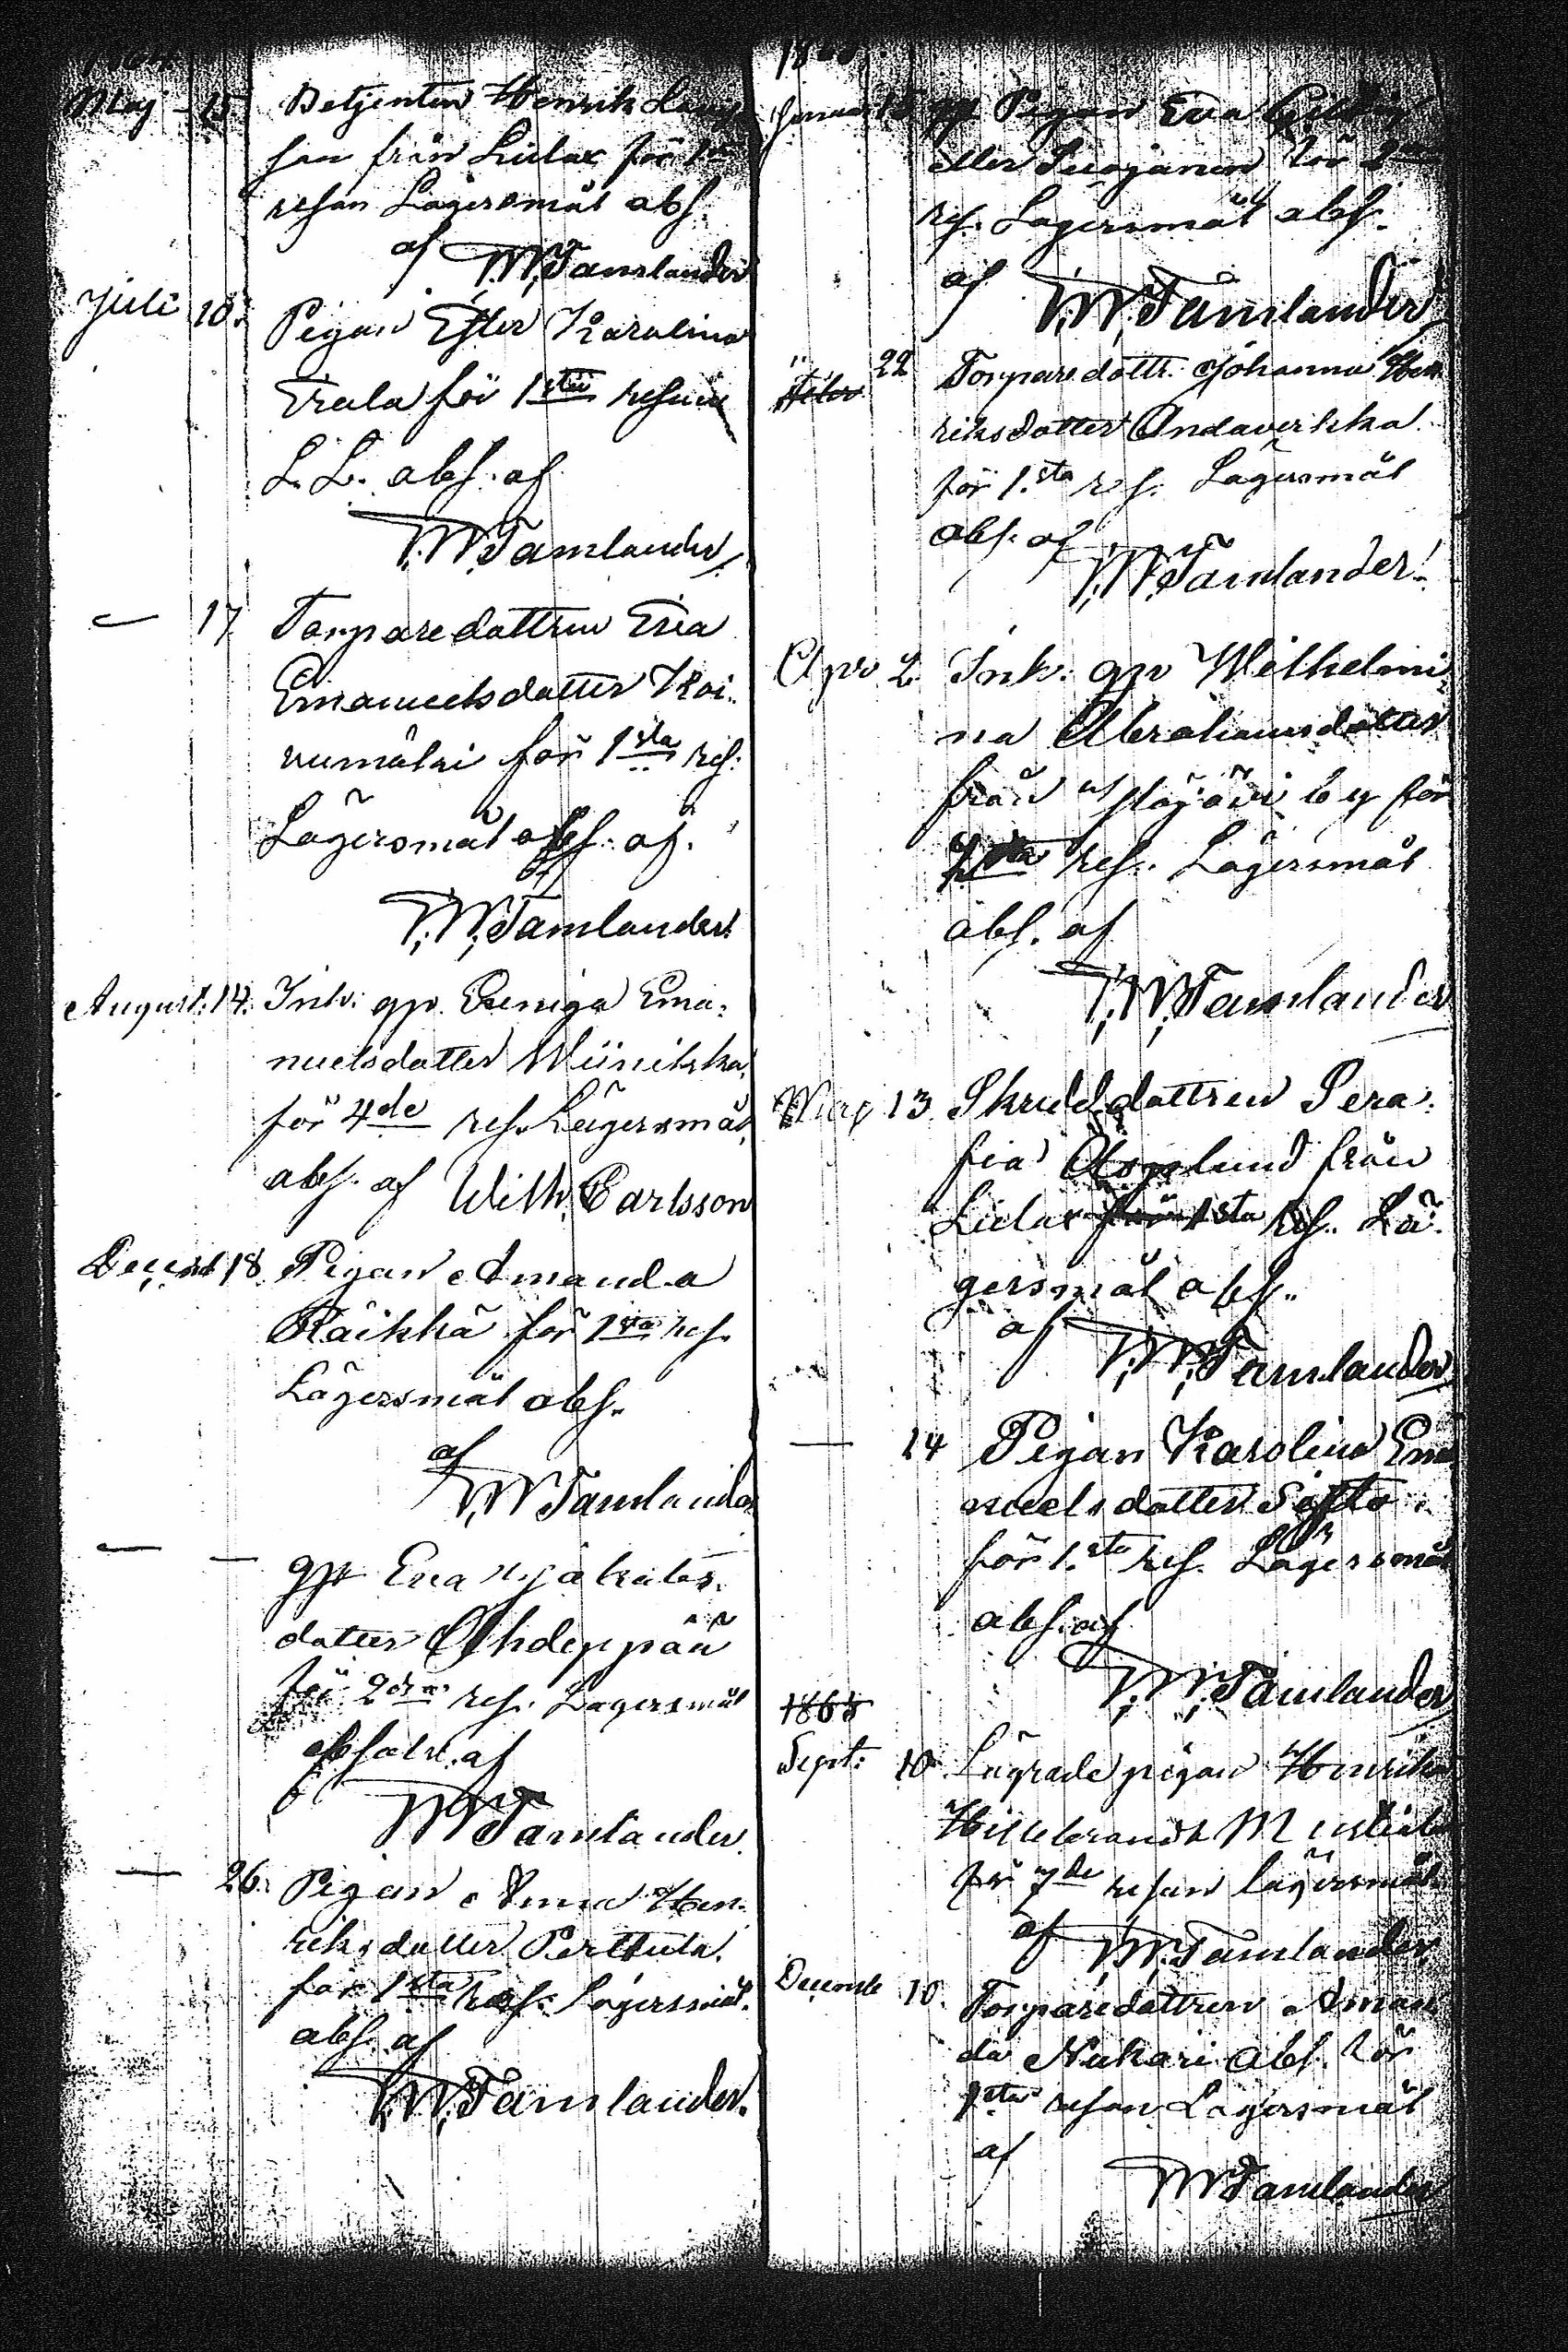 Maj - 15 Betjenten Henrik
son från Lielax för 1sta
resan Lägersmål abs.
af
T. W. Tamlander
Juli 10. Pigan Ester Karolina
för 1sta resan
L. L. abs. af
T. W. Tamlander
— 17. Torparedottren Eva
Emanuelsdotter Koi-
vumäki för 1sta res.
Lägersmål abs. af
T. W. Tamlander
August. 14. Inh. qp. Emanuelsdotter
nuelsdotter Wiinikka
för 4de res. Lägersmål
abs. af Wilh. Carlsson
Decemb 18. Pigan Amanda
Räikkä för 1sta res.
Lägersmål abs.
af
T. W. Tamlander
— — qp Eva
dotter Ohdeppää
för 2dra res. Lägersmål
absolv. af
T. W. Tamlander
26. Pigan Anna Hen-
riksdotter Perttula
för 1sta res. Lägersmål
abs. af
T. W. Tamlander
Januari 15 qp Pigan Eva
eller för
res. Lägersmål abs.
af
T. W. Tamlander
" 22 Torparedottr. Johanna Hen
riksdotter Andaverkka
för 1.sta res. Lägersmål
abs. af
T. W. Tamlander
Apr. 2. Inh. qp Wilhelmi-
na Abrahamsdotter
från by för
res. Lägersmål
abs. af
T. W. Tamlander
Maj 13 Skrädd.dottren Sera-
fia Asplund från
Lielax för 1sta res. Lä-
gersmål abs.
af
T. W. Tamlander
— 14 Pigan Karolina Ema
nuelsdotter
för 1.sta res. Lägersmål
abs. af
T. W. Tamlander
1865
Sept: 10 Lägrade pigan Henrika
Hillebrandt
för 7de resan lägersmål
af T. W. Tamlander
Decemb 10. Torparedottren Aman
da Nukari abs. för
1sta resan Lägersmål
af
T. W. Tamlander